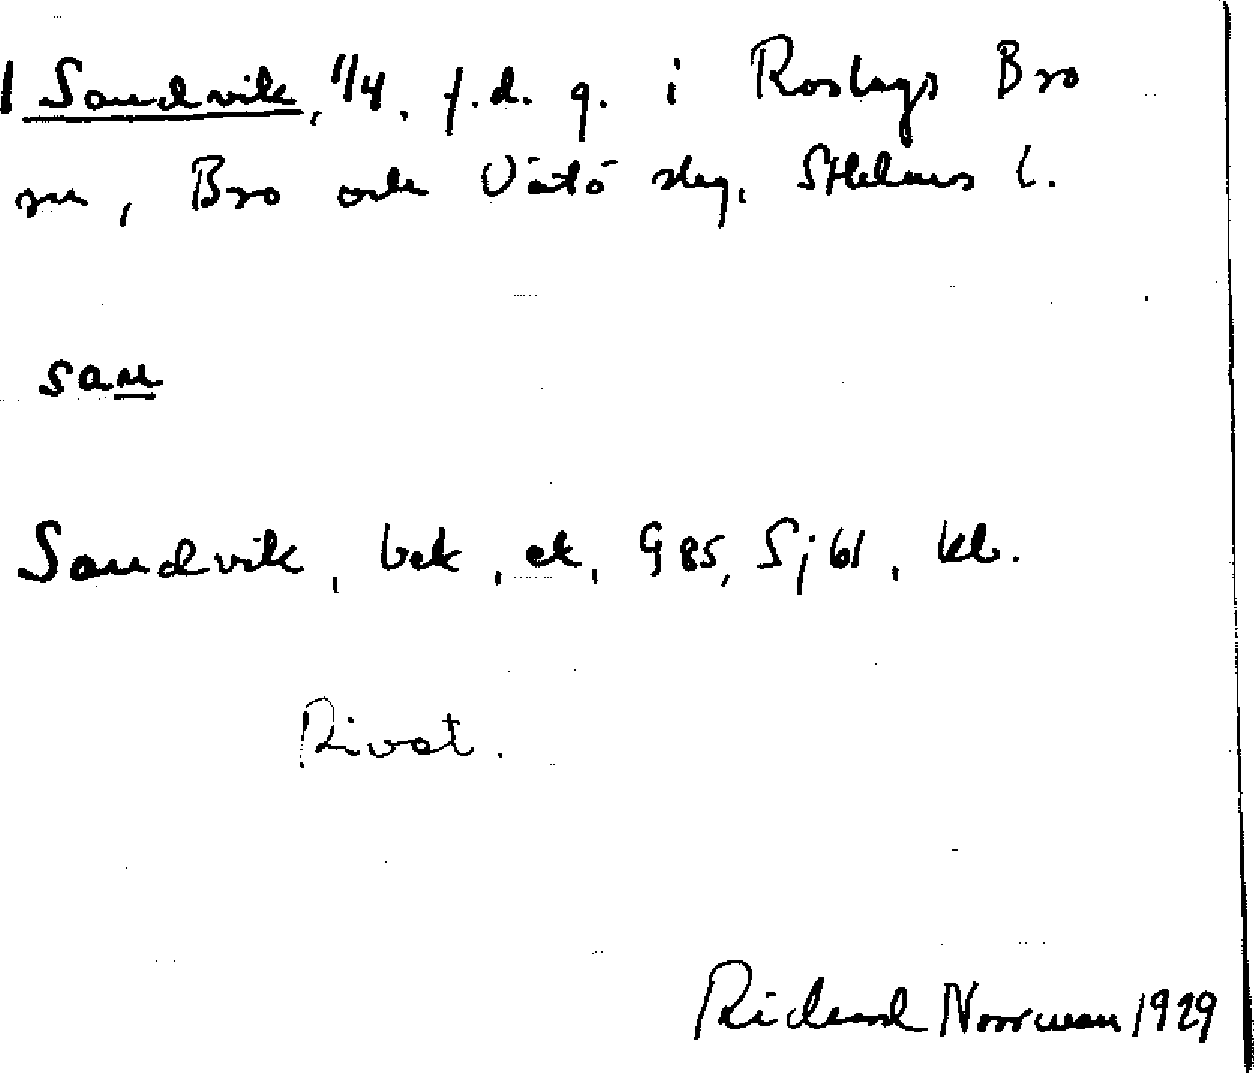 1 Sandvik, 1/4, f.d. g. i Roslags Bro
sn, Bro och Vätö skg, Sthlms l.
San
Sandvik, bek, ek, G 85, Sj 61, kb.
Rivet.
Rickard Norrman 1929